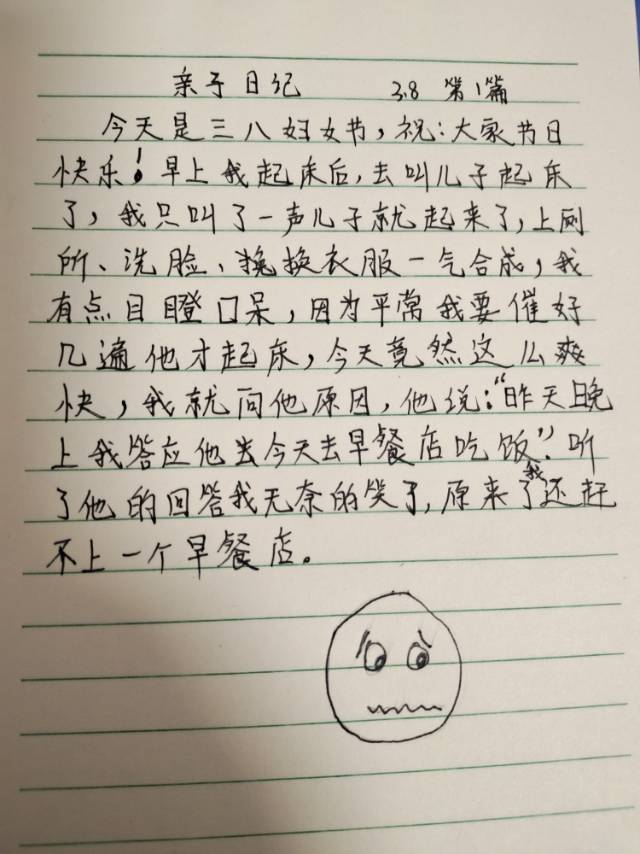 亲子日记 3.8 第1篇
今天是三八妇女节，祝：大家节日
快乐！早上我起床后，去叫儿子起床
了，我只叫了一声儿子就起来了，上厕
所、洗脸、换衣服一气合成，我
有点目瞪口呆，因为平常我要催好
几遍他才起床，今天竟然这么爽
快，我就问他原因，他说：“昨天晚
上我答应他 今天去早餐店吃饭”。听
了他的回答我无奈的笑了，原来我还赶
不上一个早餐店。